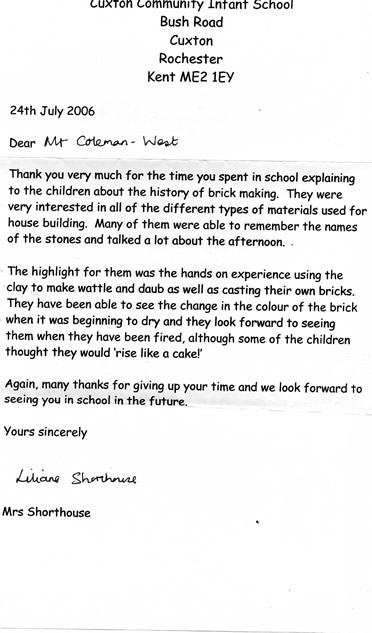 Cuxton Community Infant School
Bush Road
Cuxton
Rochester
Kent ME2 1EY
24th July 2006
Dear Mr Coleman-West
Thank you very much for the time you spent in school explaining
to the children about the history of brick making. They were
very interested in all of the different types of materials used for
house building. Many of them were able to remember the names
of the stones and talked a lot about the afternoon.
The highlight for them was the hands on experience using the
clay to make wattle and daub as well as casting their own bricks.
They have been able to see the change in the colour of the brick
when it was beginning to dry and they look forward to seeing
them when they have been fired, although some of the children
thought they would 'rise like a cake!'
Again, many thanks for giving up your time and we look forward to
seeing you in school in the future.
Yours sincerely
Liliane Shorthouse
Mrs Shorthouse